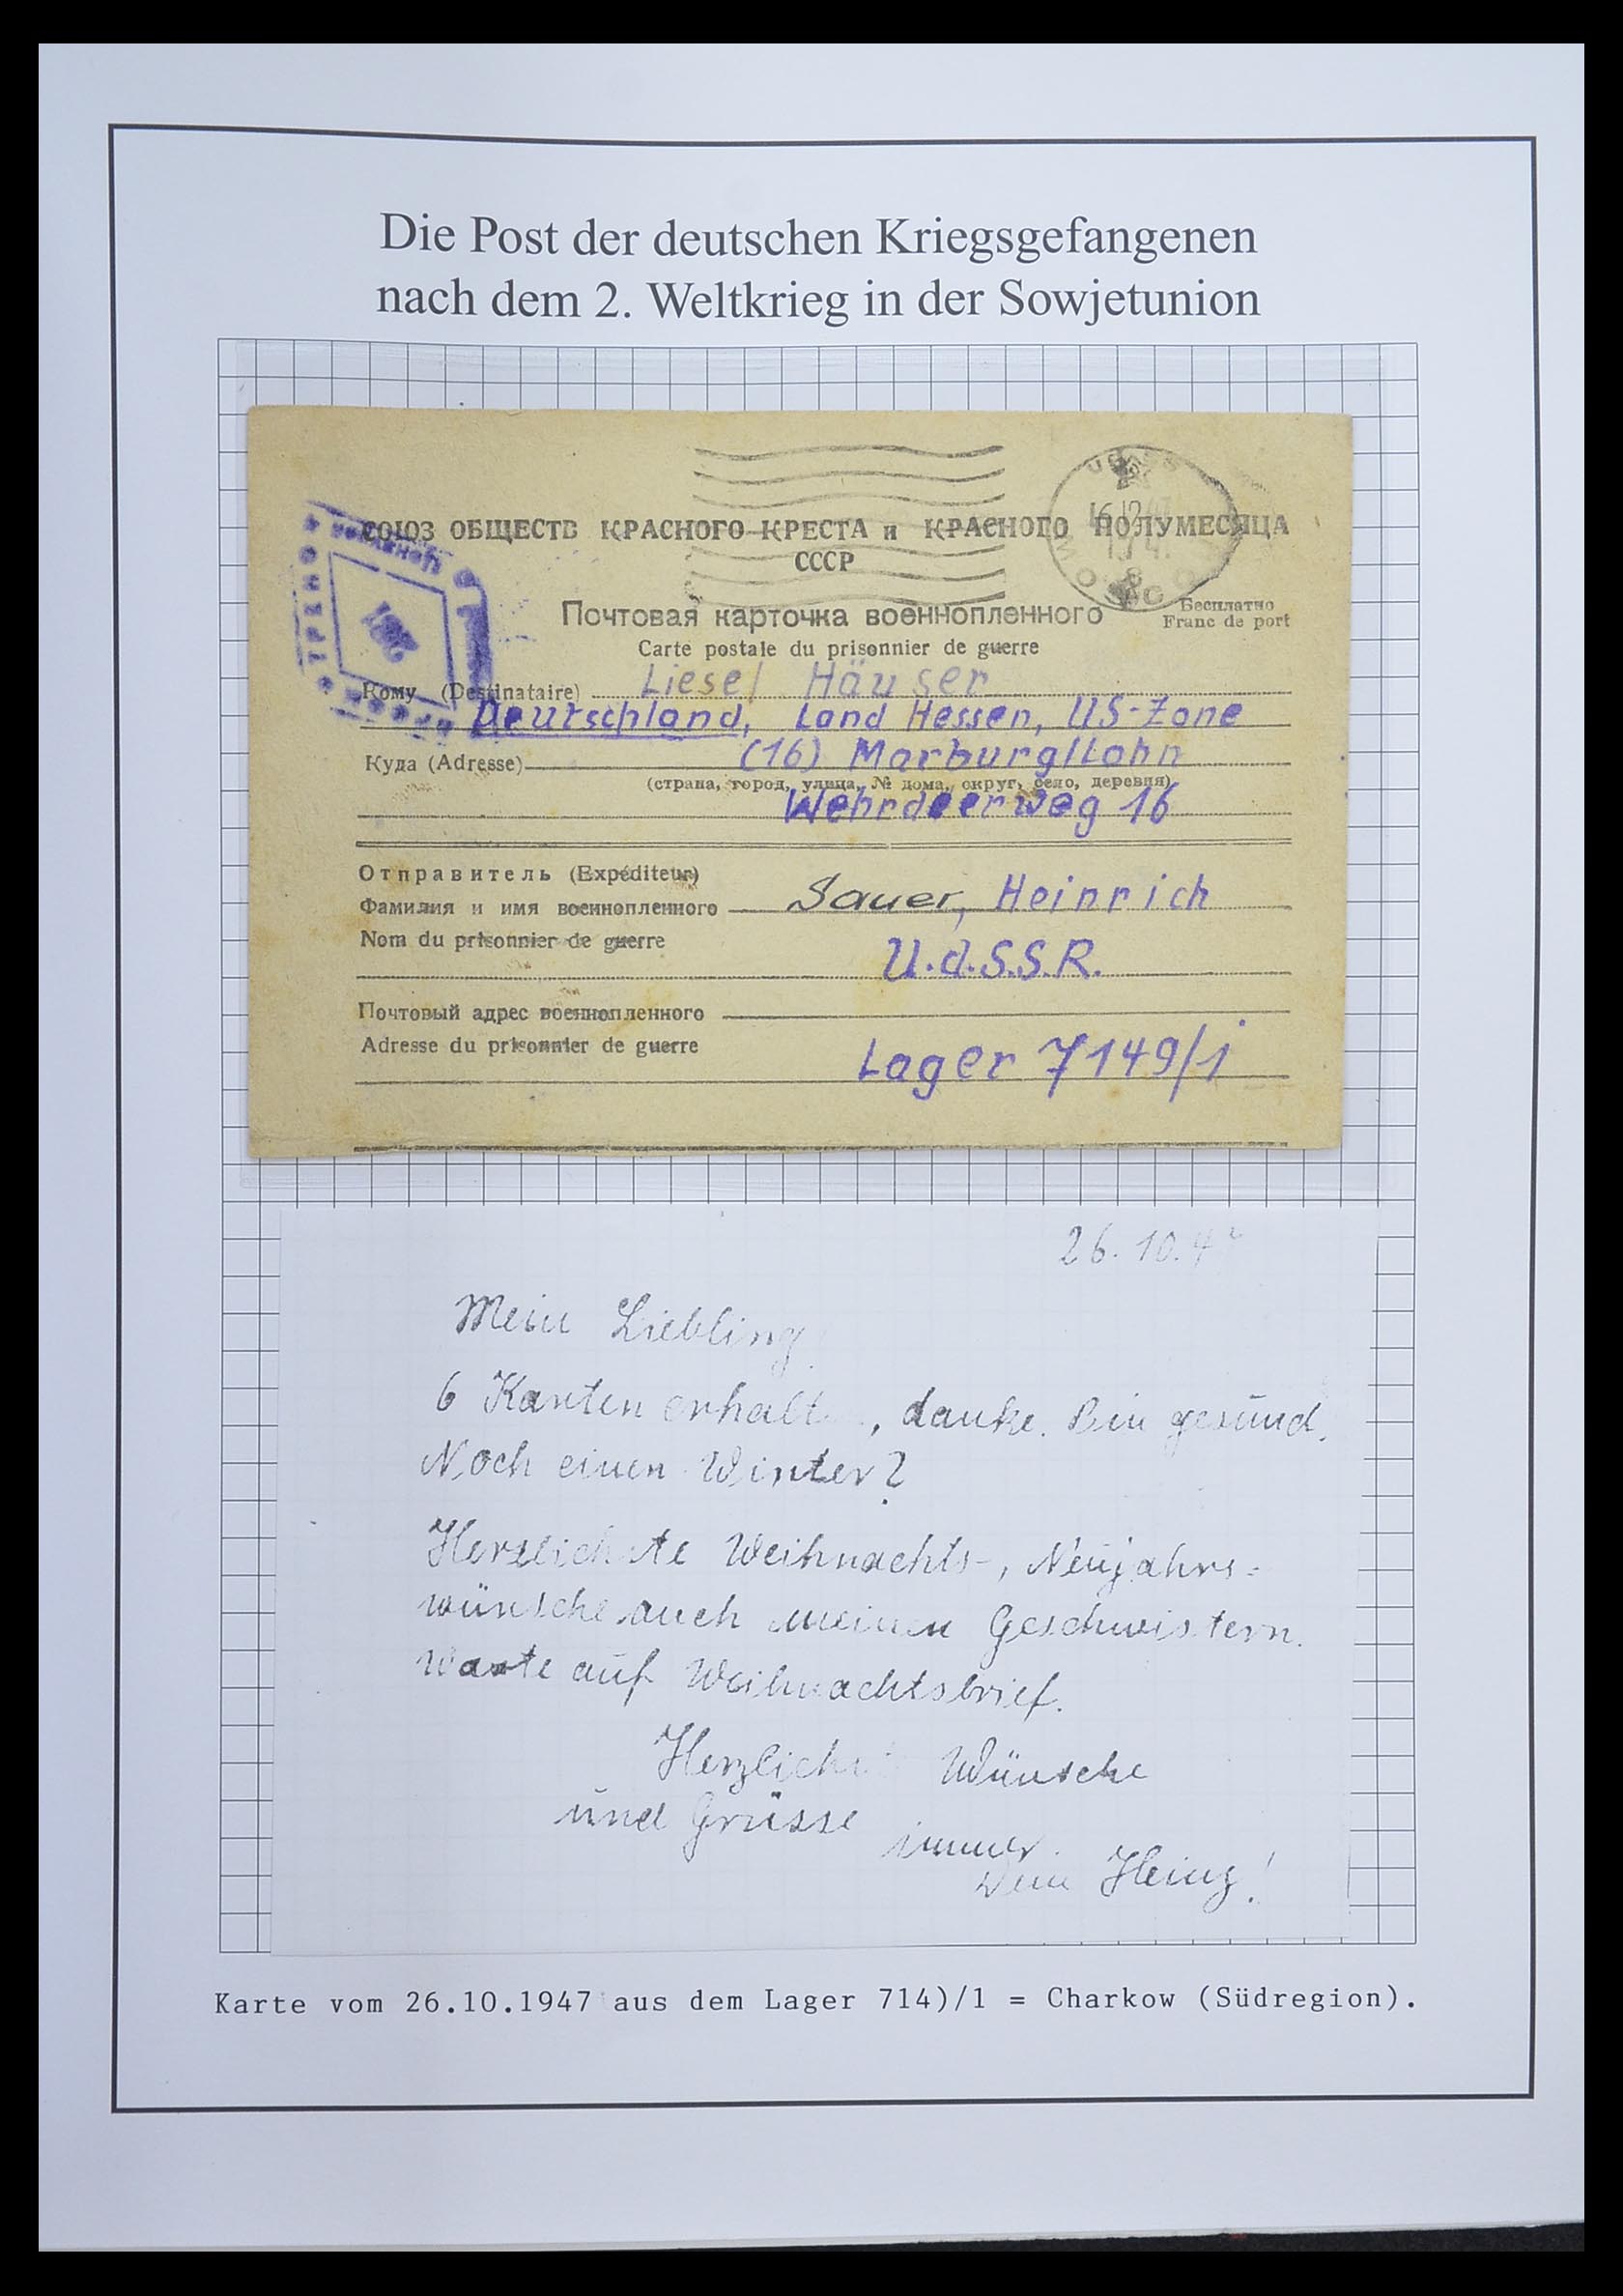 Die Post der deutschen Kriegsgefangenen
nach dem 2. Weltkrieg in der Sowjetunion
СОЮЗ ОБЩЕСТВ КРАСНОГО КРЕСТА и КРАСНОГО ПОЛУМЕСЯЦА
СССР
Почтовая карточка военнопленного
Бесплатно
Franc de port
Carte postale du prisonnier de guerre
Кому (Destinataire) Liesel Häuser
Deutschland, Land Hessen, US-Zone
Куда (Adresse) (16) Marburg/Lahn
(страна, город, улица, № дома, округ, село, деревня)
Wehrdaerweg 16
Отправитель (Expéditeur)
Фамилия и имя военнопленного Sauer, Heinrich
Nom du prisonnier de guerre
U.d.S.S.R.
Почтовый адрес военнопленного
Adresse du prisonnier de guerre
Lager 7149/1
26.10.4
Mein Liebling
6 Karten erhalt , danke. Bin gesund.
Noch einen Winter?
Herzlichste Weihnachts-, Neujahrs-
wünsche auch meinen Geschwistern.
Warte auf Weihnachtsbrief.
Herzliche Wünsche
und Grüsse
immer
Dein Heinz!
Karte vom 26.10.1947 aus dem Lager 714)/1 = Charkow (Südregion).